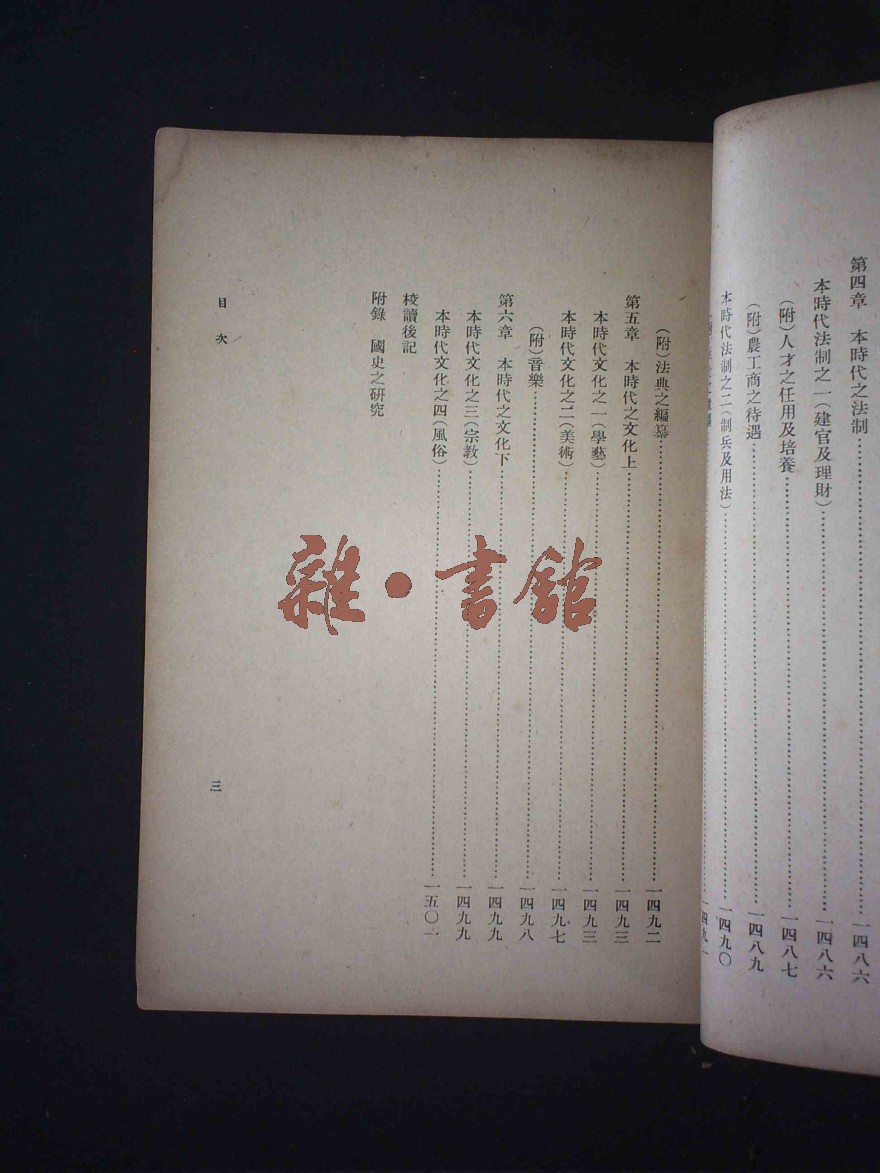 第四章　本時代之法制……一四八六
本時代法制之一(建官及理財)……一四八六
(附)人才之任用及培養……一四八七
(附)農工商之待遇……一四八九
本時代法制之二(制兵及用法)……一四九〇
(附)法典之編纂……一四九二
第五章　本時代之文化上……一四九三
本時代文化之一(學藝)……一四九三
本時代文化之二(美術)……一四九七
(附)音樂……一四九八
第六章　本時代之文化下……一四九九
本時代文化之三(宗教)……一四九九
本時代文化之四(風俗)……一五〇一
校讀後記
附錄　國史之研究
目次
三
雜·書館